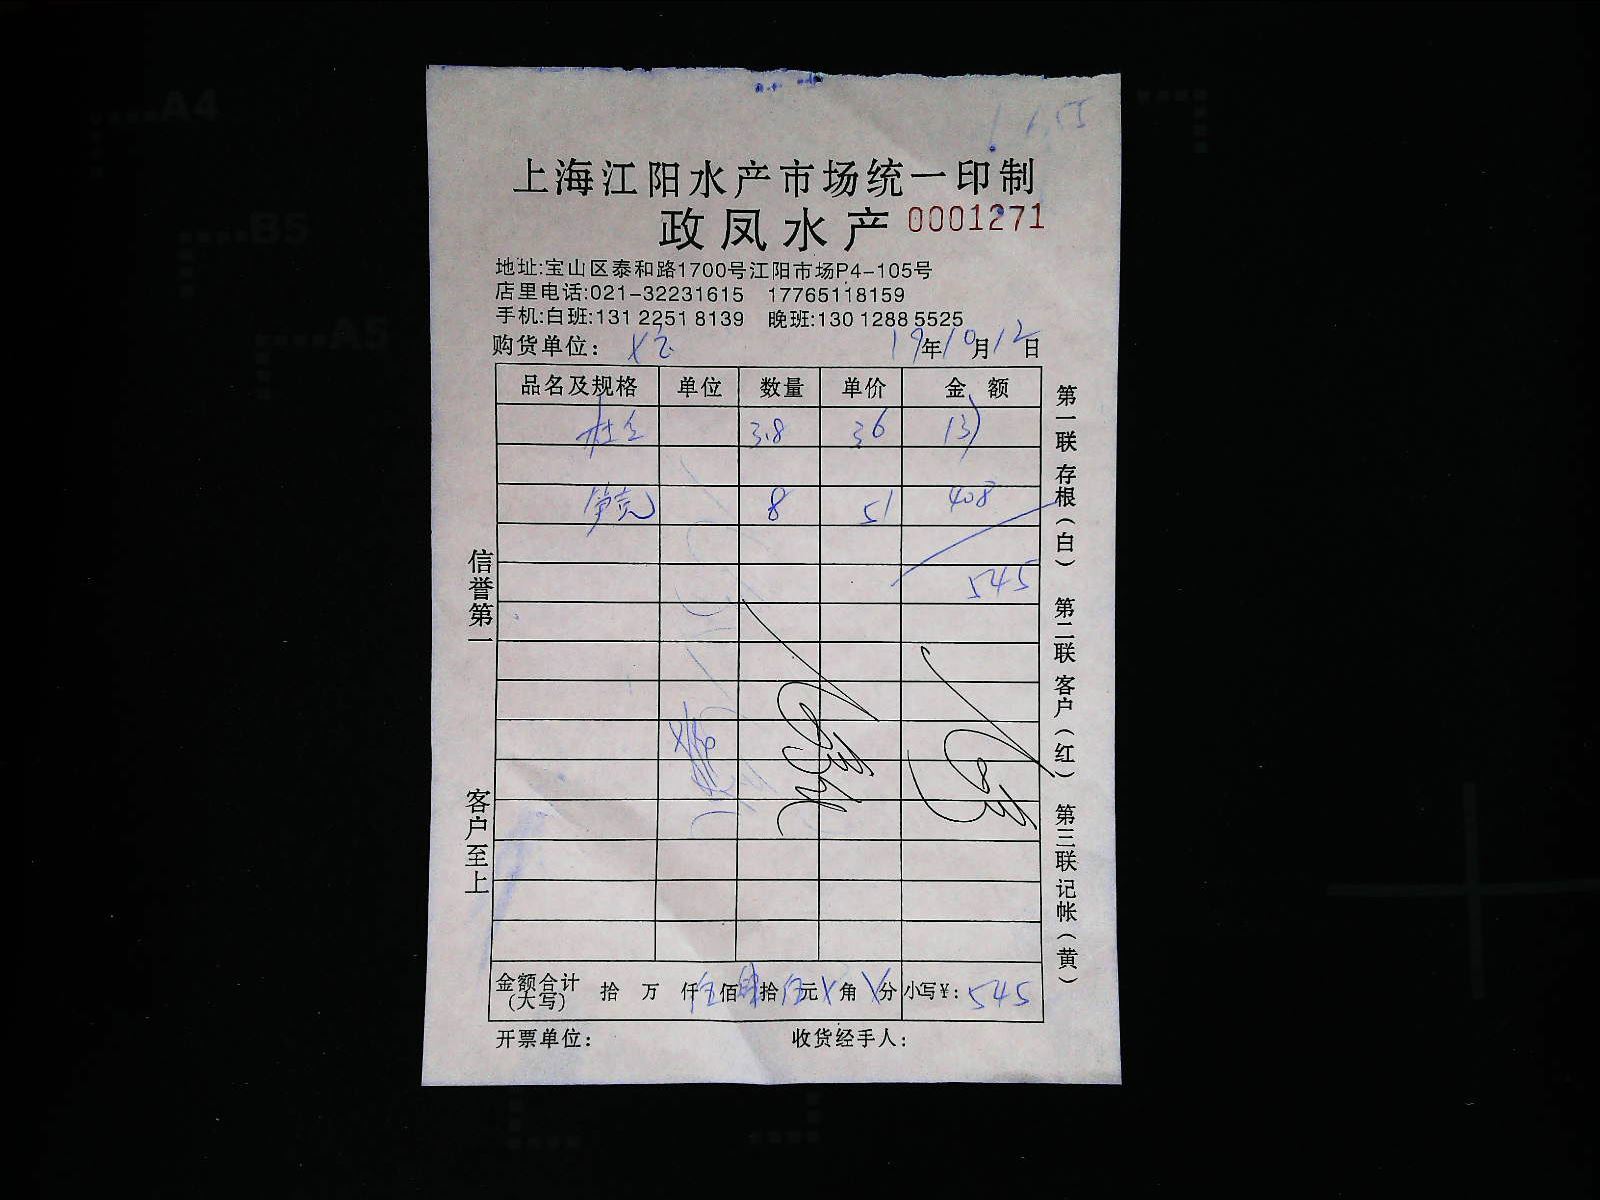 上海江阳水产市场统一印制
政凤水产 0001271
地址:宝山区泰和路1700号江阳市场P4-105号
店里电话:021-32231615 17765118159
手机:白班:131 2251 8139 晚班:130 1288 5525
购货单位:
19年10月12日
品名及规格 单位 数量 单价 金额
3.8 36 137
8 51 408
545
金额合计(大写) 拾 万 仟伍佰肆拾伍元 角 分 小写¥: 545
开票单位: 收货经手人:
信誉第一
客户至上
第一联 存根(白) 第二联 客户(红) 第三联 记帐(黄)
A4
B5
A5